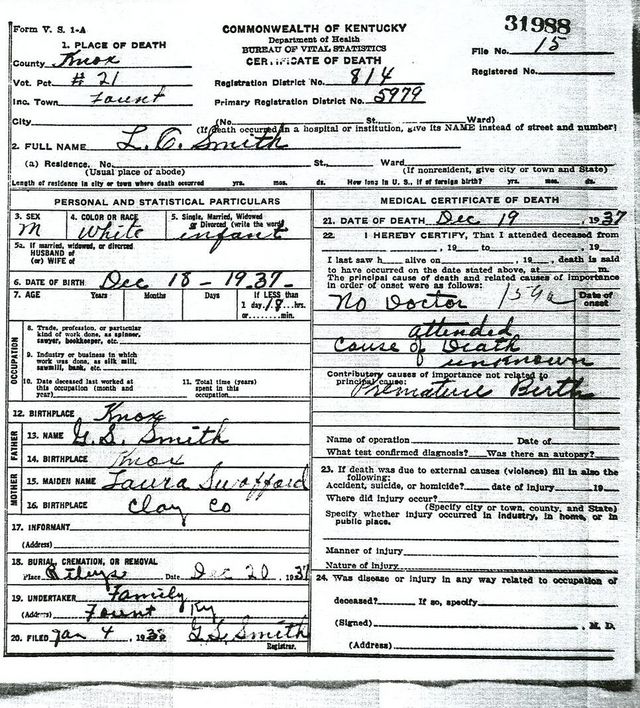 Form V. S. 1-A
COMMONWEALTH OF KENTUCKY
31988
Department of Health
BUREAU OF VITAL STATISTICS
CERTIFICATE OF DEATH
File No. 15
Registered No.
1. PLACE OF DEATH
County Knox
Vot. Pct. # 21
Inc. Town Fount
Registration District No. 814
Primary Registration District No. 5979
City (No. St., Ward)
(If death occurred in a hospital or institution, give its NAME instead of street and number)
2. FULL NAME L. C. Smith
(a) Residence, No. St., Ward
(Usual place of abode) (If nonresident, give city or town and State)
Length of residence in city or town where death occurred yrs. mos. ds. How long in U. S., if of foreign birth? yrs. mos. ds.
PERSONAL AND STATISTICAL PARTICULARS
3. SEX 4. COLOR OR RACE 5. Single, Married, Widowed
or Divorced (write the word)
M White infant
5a. If married, widowed, or divorced
HUSBAND of
(or) WIFE of
6. DATE OF BIRTH Dec 18 - 1937-
7. AGE Years Months Days If LESS than
1 day, 18 hrs.
or min.
OCCUPATION
8. Trade, profession, or particular
kind of work done, as spinner,
sawyer, bookkeeper, etc.
9. Industry or business in which
work was done, as silk mill,
sawmill, bank, etc.
10. Date deceased last worked at
this occupation (month and
year)
11. Total time (years)
spent in this
occupation
12. BIRTHPLACE Knox
FATHER
13. NAME G. S. Smith
14. BIRTHPLACE Knox
MOTHER
15. MAIDEN NAME Laura Swafford
16. BIRTHPLACE Clay Co
17. INFORMANT
(Address)
18. BURIAL, CREMATION, OR REMOVAL
Place Date Dec 20, 1937
19. UNDERTAKER Family
(Address) Fount Ky
20. FILED Jan 4, 193 G. S. Smith
Registrar.
MEDICAL CERTIFICATE OF DEATH
21. DATE OF DEATH Dec 19, 1937
22. I HEREBY CERTIFY, That I attended deceased from
, 19 to , 19
I last saw h alive on , 19 , death is said
to have occurred on the date stated above, at m.
The principal cause of death and related causes of importance
in order of onset were as follows:
Date of
onset
No Doctor 159a
attended
Cause of Death
unknown
Contributory causes of importance not related to
principal cause:
Premature Birth
Name of operation Date of
What test confirmed diagnosis? Was there an autopsy?
23. If death was due to external causes (violence) fill in also the
following:
Accident, suicide, or homicide? date of injury 19
Where did injury occur?
(Specify city or town, county, and State)
Specify whether injury occurred in industry, in home, or in
public place.
Manner of injury
Nature of injury
24. Was disease or injury in any way related to occupation of
deceased? If so, specify
(Signed) , M. D.
(Address)